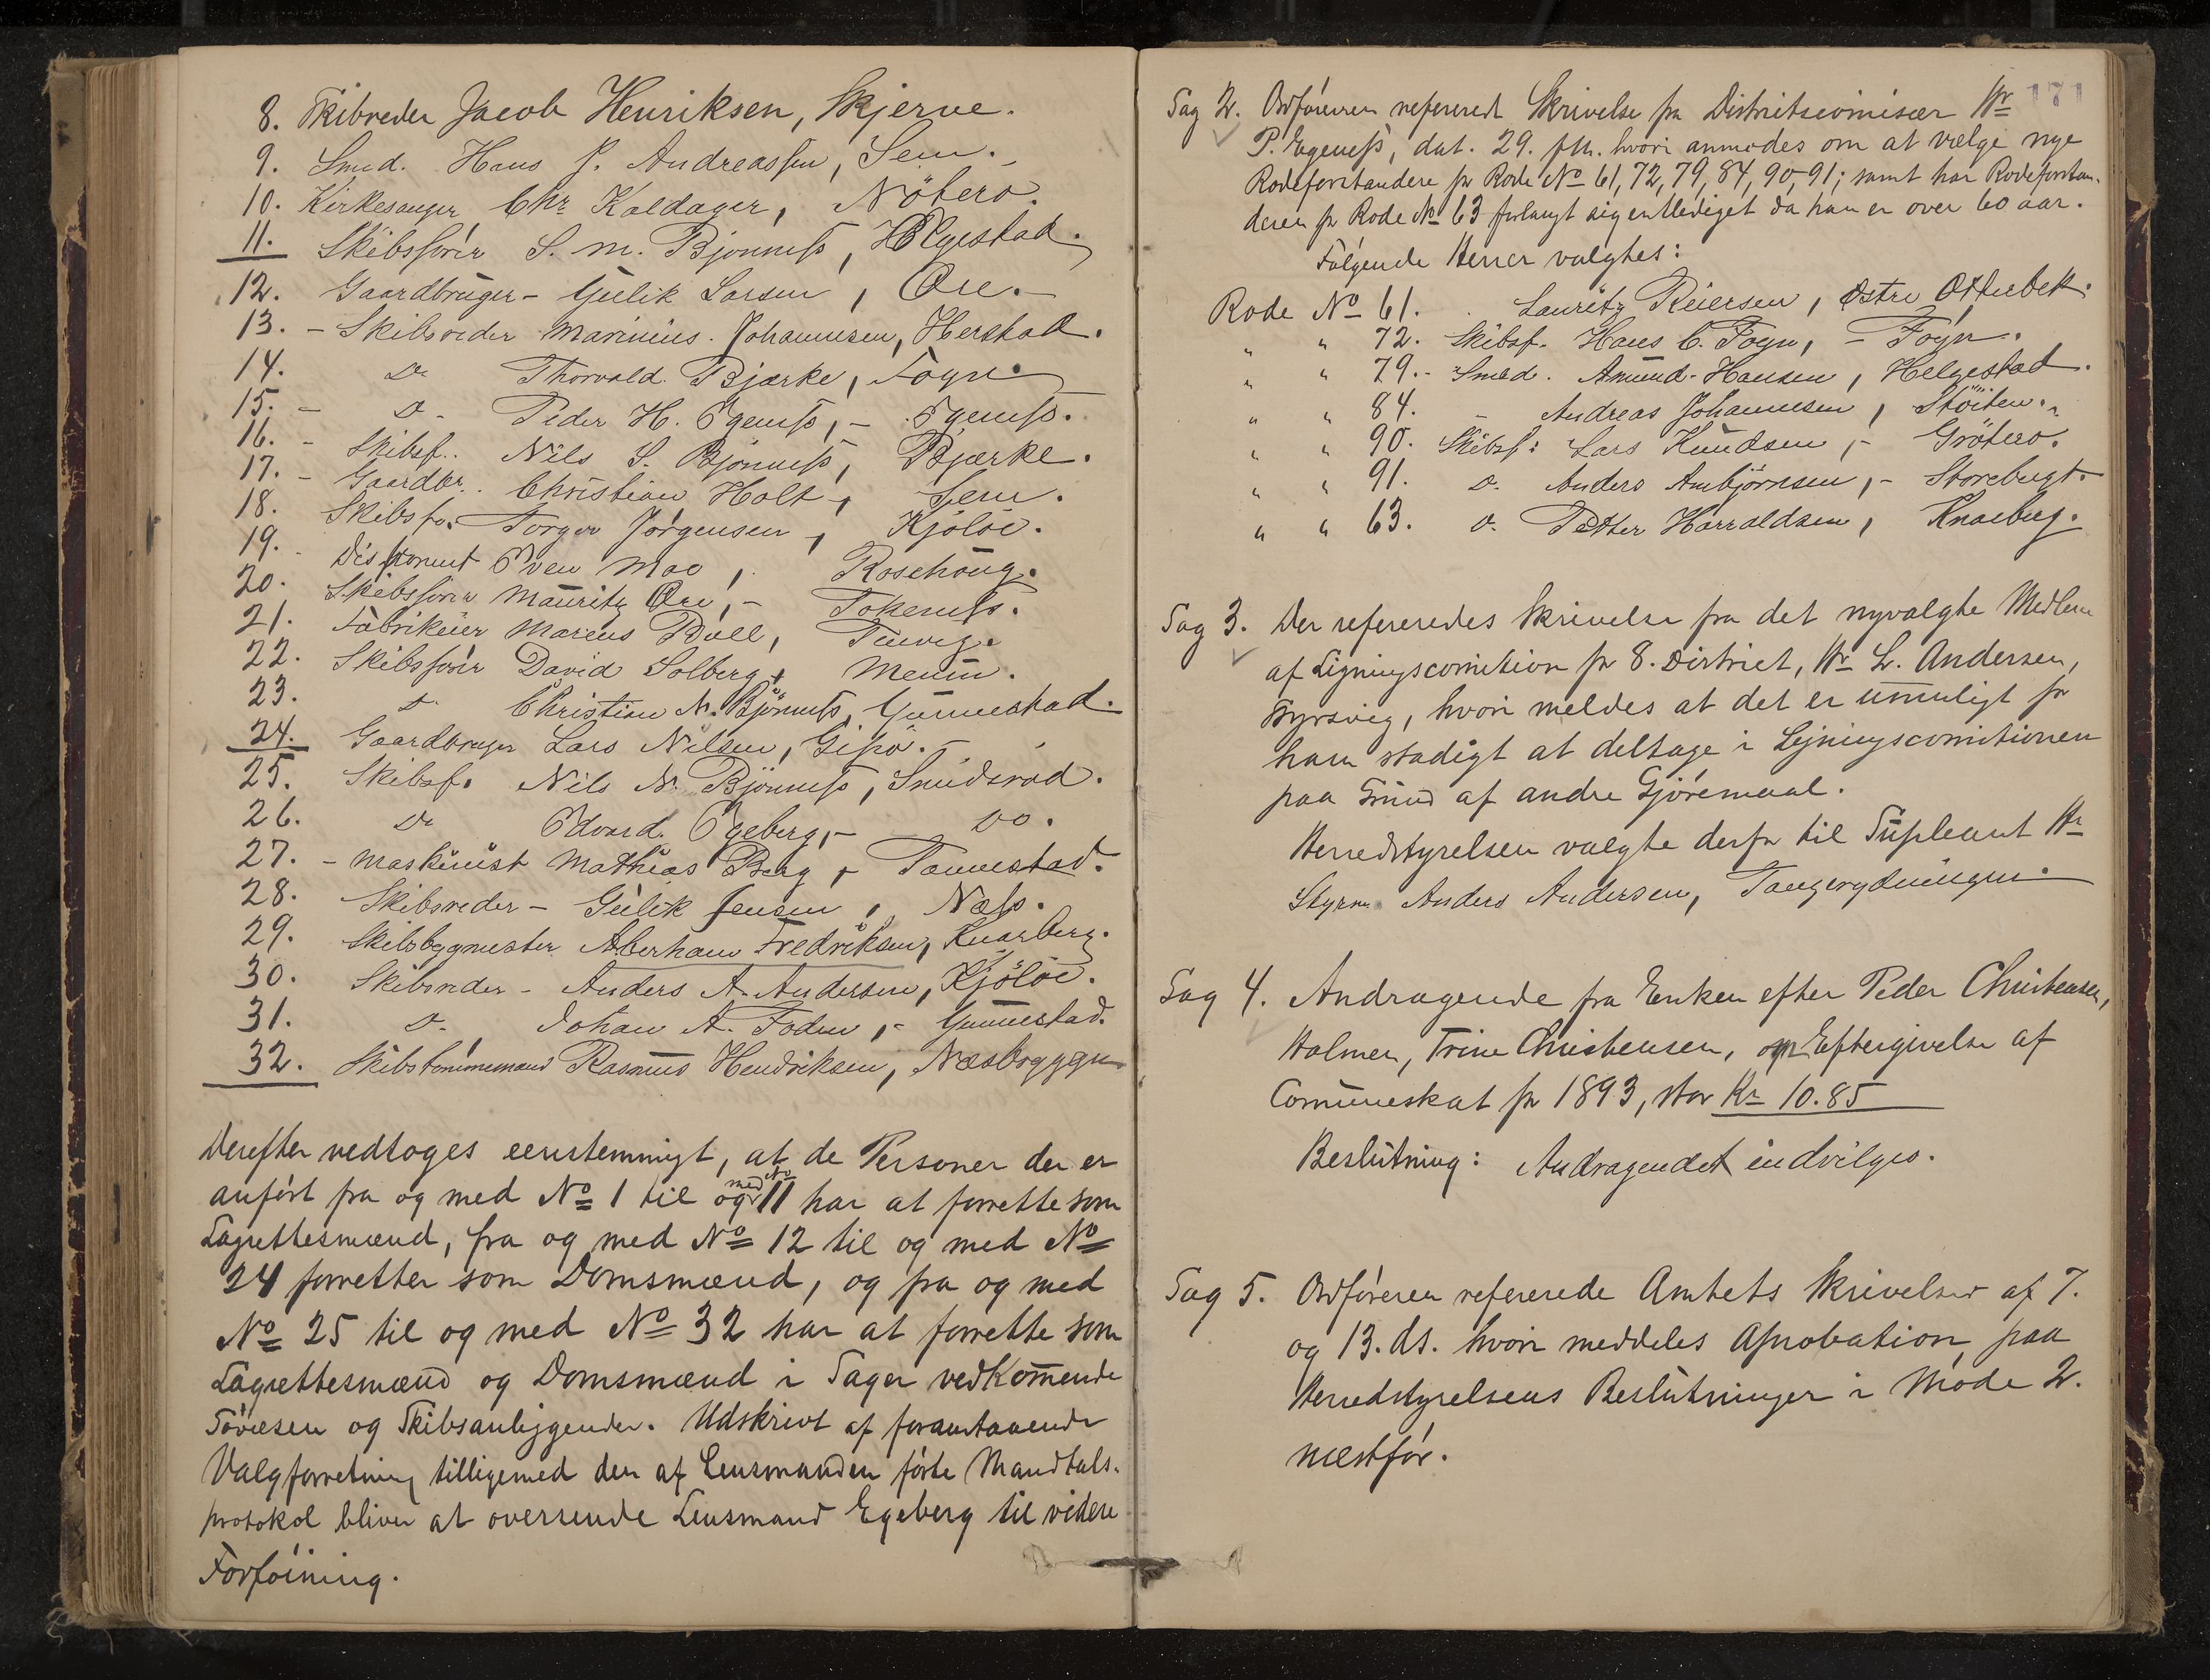 8. Skibreder Jacob Henriksen, Skjerve.
9. Smed. Hans P. Andreassen, Sem.
10. Kirkesanger Chr. Kaldager, Nötterö.
11. Skibsförer S. M. Bjönneß, Helgestad.
12. Gaardbruger - Gulik Larsen, Öre. -
13. - Skibsreder Marinius Johannesen, Herstad.
14. Do Thorvald Bjærke, Föyn.
15. - Do - Peder H. Egeneß, - Egeneß.
16. - Skibsf. Nils S. Bjönneß, Bjærke.
17. - Gaardbr. Christian Holt, Sem.
18. Skibsfö. Torger Jörgensen, Kjölöe.
19. Disponent Even Moe, Rosehaug.
20. Skibsförer Mauritz Öre, - Tokeneß.
21. Fabrikeier Marcus Bull, Teieveg.
22. Skibsförer David Solberg, Menm.
23. Do Christian N. Bjönneß, Gunnestad.
24. Gaardbruger Lars Nilsen, Gipö. -
25. Skibsf. Nils N. Bjönneß, Smidsröd.
26. Do Edvard Egeberg, - Do.
27. - Maskinist Mathias Berg, Tannestad.
28. Skibsreder - Gulik Jensen, Næs.
29. Skibsbygmester Abberham Fredriksen, Knarberg.
30. Skibsreder - Anders A. Andersen, Kjölöe.
31. Do. Johan A. Foden, - Gunnestad.
32. Skibstömmermand Rasmus Hendriksen, Næsbryggen
Derefter vedtoges eenstemmigt, at de Personer der er
anfört fra og med No 1 til og med No 11 har at forrette som
Lagrettesmænd, fra og med No 12 til og med No
24 forretter som Domsmænd, og fra og med
No 25 til og med No 32 har at forrette som
Lagrettesmænd og Domsmænd i Sager vedkommende
Sövæsen og Skibsanliggender. Udskrivt af foranstaaende
Valgforretning tilligemed den af Lensmanden förte Mandtals-
protokol bliver at oversende Lensmand Egeberg til videre
Forföining.
171
Sag 2. Ordföreren refereredt Skrivelse fra Distritscomisær Hr
P. Egeneß, dat. 29. f.M. hvori anmodes om at vælge nye
Rodeforstandere for Rode No 61, 72, 79, 84, 90, 91; samt har Rodeforstan-
deren for Rode No 63 forlangt sig entlediget da han er over 60 aar.
Fölgende Herrer valgtes:
Rode No 61. Lauritz Reiersen, Östre Otterbek.
" " 72. Skibsf. Hans C. Föyn, - Föyn.
" " 79. - Smed. Amund Hansen, Helgestad.
" " 84. - Andreas Johannesen, Stöiten.
" " 90. Skibsf: Lars Knudsen, - Grötterö.
" " 91. Do. Anders Ambjörnsen, - Storebugt.
" " 63. Do. Petter Harraldsen, Knarberg.
Sag 3. Der refereredes Skrivelse fra det nyvalgte Medlem
af Ligningscomition for 8. District, Hr L. Andersen,
Fyrsvig, hvori meldes at det er umuligt for
ham stadigt at deltage i Lejningscomitionen
paa Grund af andre Gjöremaal.
Herredstyrelsen valgte derfor til Supleant Hr
Styrm. Anders Andersen, Tangerydningen.
Sag 4. Andragende fra Enken efter Peder Christensen,
Holmen, Trine Christensen, om Eftergivelse af
Communeskat for 1893, stor Kr 10.85
Beslutning: Andragendet indvilges.
Sag 5. Ordföreren refererede Amtets Skrivelser af 7.
og 13. ds. hvori meddeles Aprobation paa
Herredstyrelsens Beslutninger i Möde 2.
næstför.